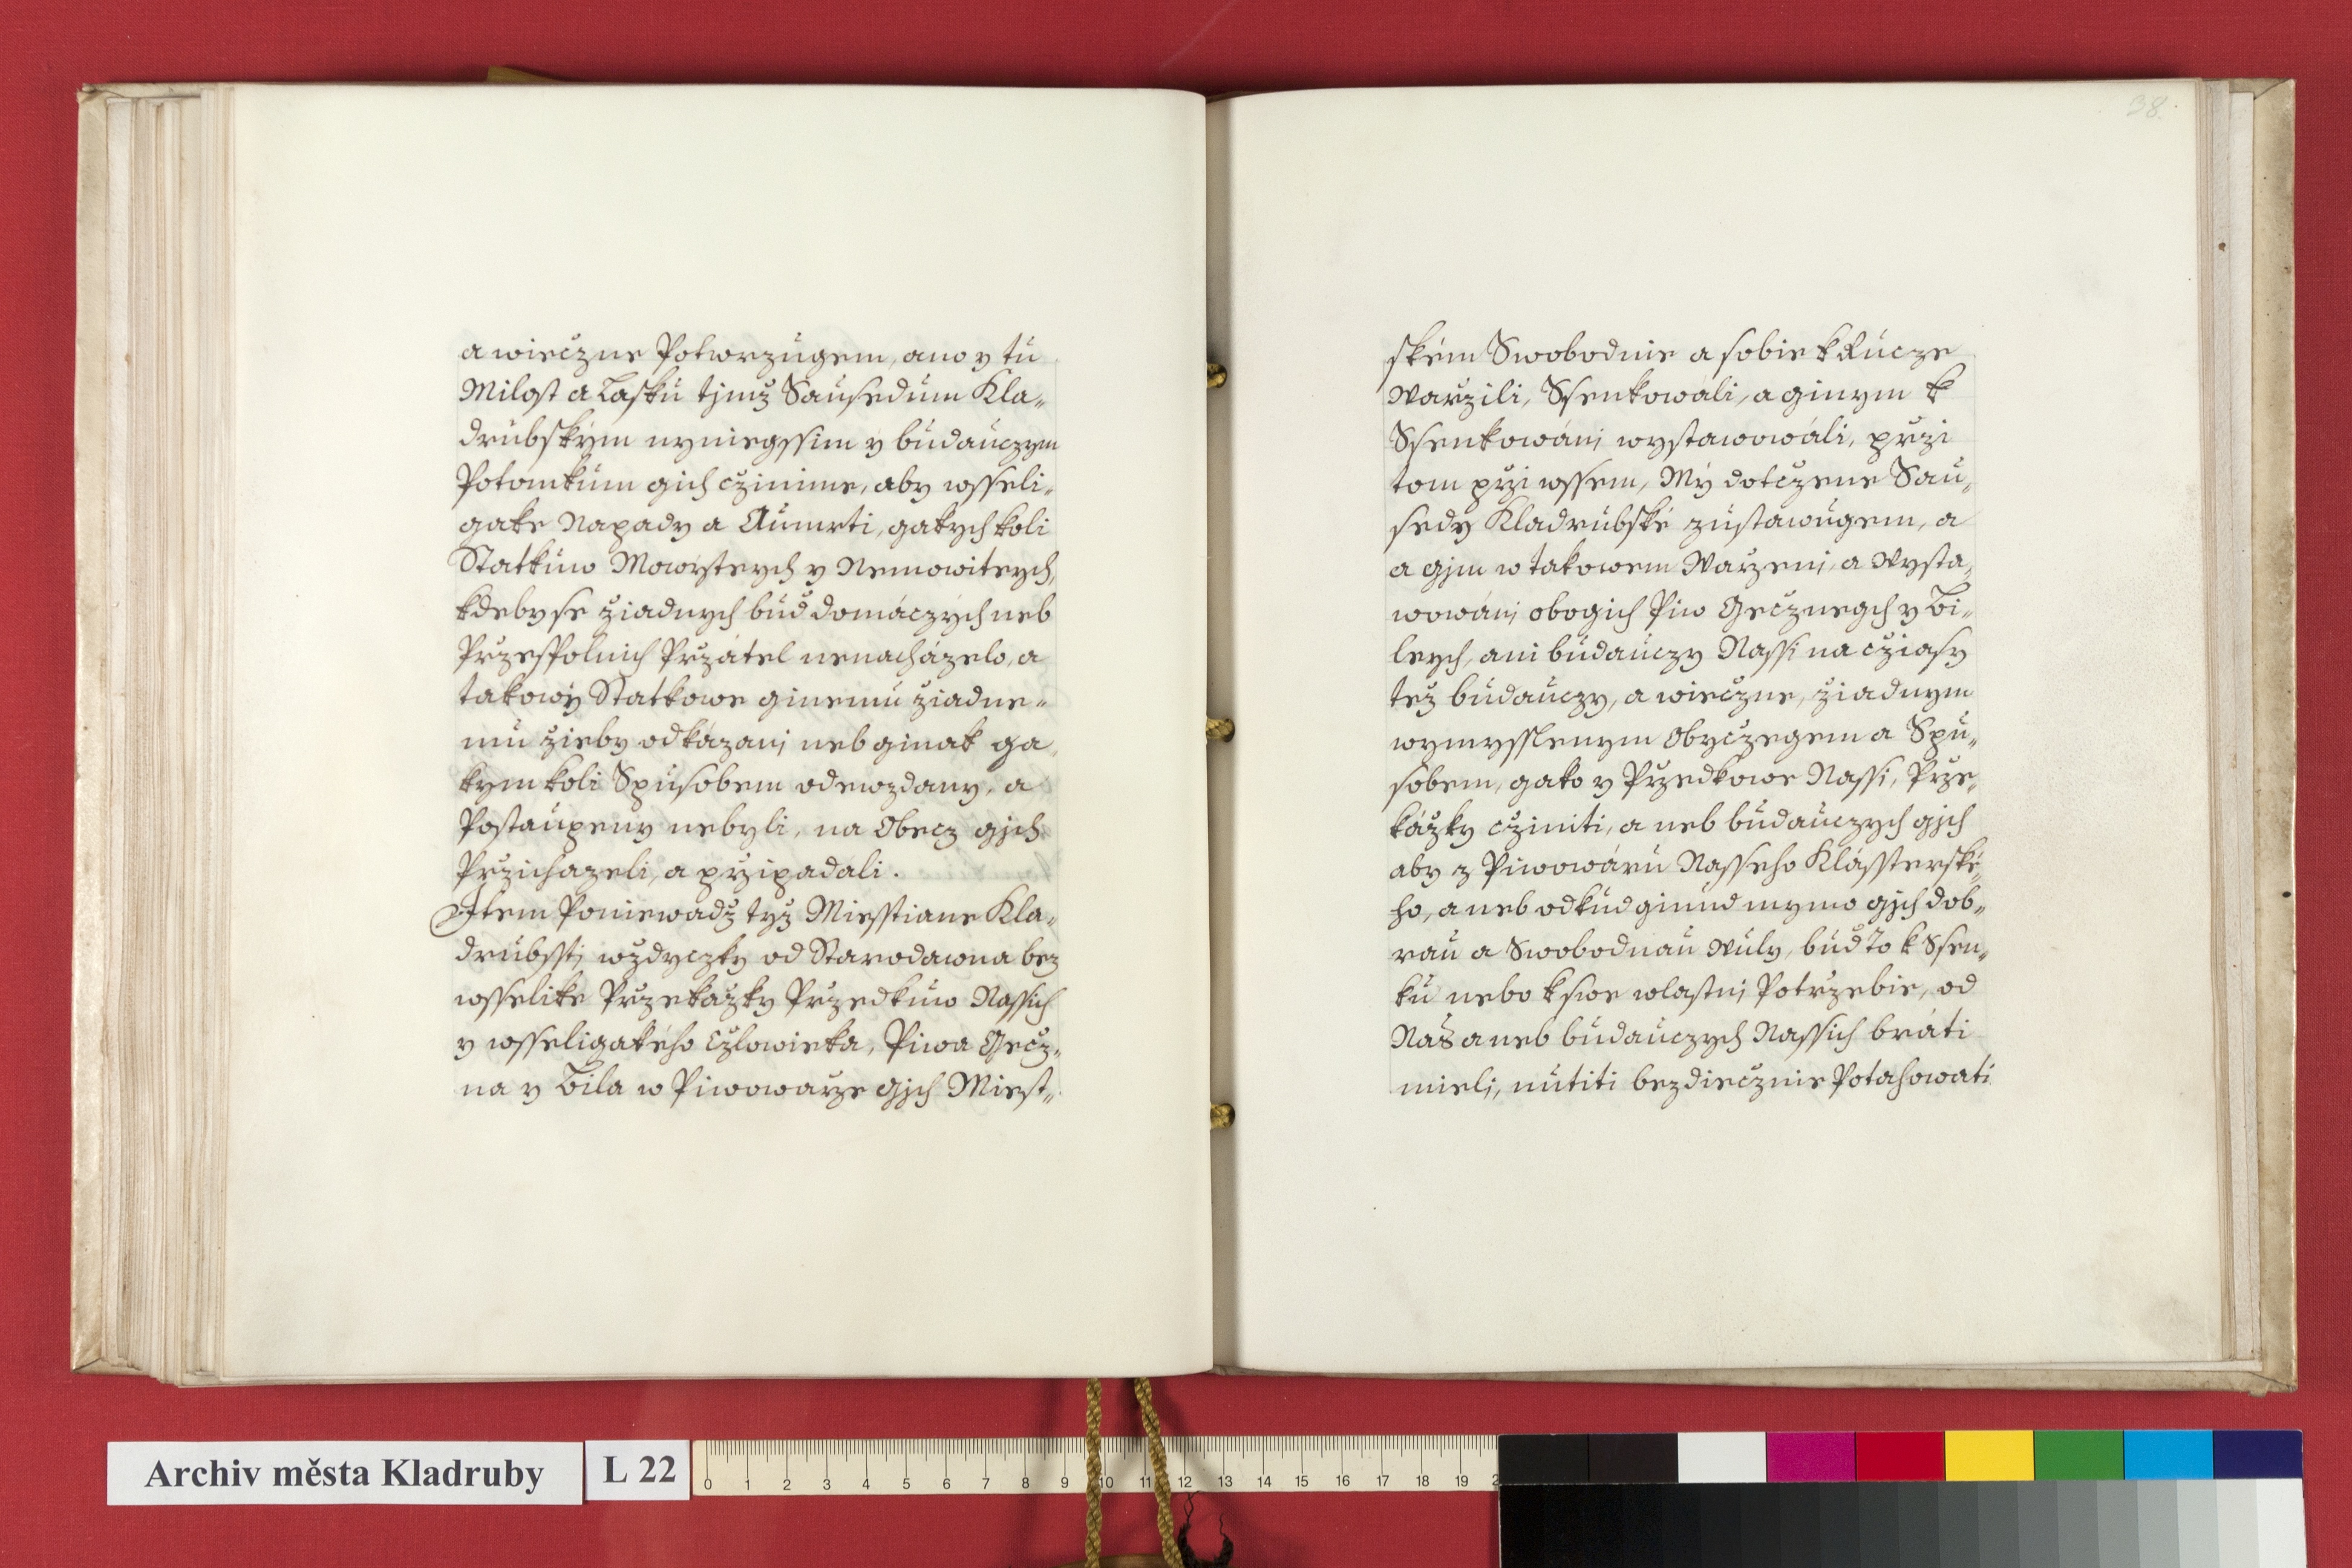 a wieczne Potwrzugem, ano y tu
Milost a Lasku tjmž Sausedum Kla„
drubským nyniegssim y budauczym
Potomkum gich cžinime, aby wsseli„
gake Napady a Aumrti, gakychkoli
Statkuw Mowiteych y Nemowiteych,
kdeby se žiadnych buď domáczých neb
Przespolnich Przátel nenacházelo, a
takowý Statkowe ginemu žiadne„
mu žieby odkázanj neb ginak ga„
kymkoli Spusobem odewzdany, a
Postaupeny nebyli, na Obecz gjch
Przichazeli, a przipadali.
Item Poniewadž tyž Miesstiane Kla„
drubsstj wždyczky od Starodawna bez
wsselike Przekažky Przedkuw Nassich
y wsseligakého Cžlowieka, Piwa Gecž„
na y Bila w Piwowarze gjch Miest„
38.
ském Swobodnie a sobie k Rucze
Warzili, Ssenkowali, a ginym k
Ssenkowánj wystawowáli, przi
tom przi wssem, Mý dotczene Sau„
sedy Kladrubské zustawugem, a
a gjm w takowem Warzenj, a Wysta„
wowánj obogich Piw Gecznegch y Bi„
leych, ani budauczy Nassi na cžiasy
tež budauczy, a wieczne, žiadnym
wymysslenym Obyczegem a Spu„
sobem, gako y Przedkowe Nassi, Prze„
kážky cžiniti, a neb budauczych gjch
aby z Piwowáru Nasseho Klássterské„
ho, a neb odkud ginud mymo gjch dob„
rau a Swobodnau Wuly, buď to k Ssen„
ku nebo k swe wlastnj Potrzebie, od
Nás a neb budauczych Nassich bráti
mielj, nutiti bezdiecznie Potahowati